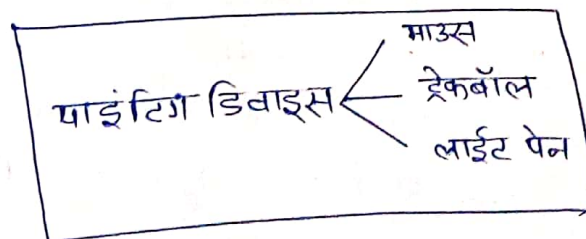 पाइंटिग डिवाइस
माउस
ट्रेकबॉल
लाईट पेन